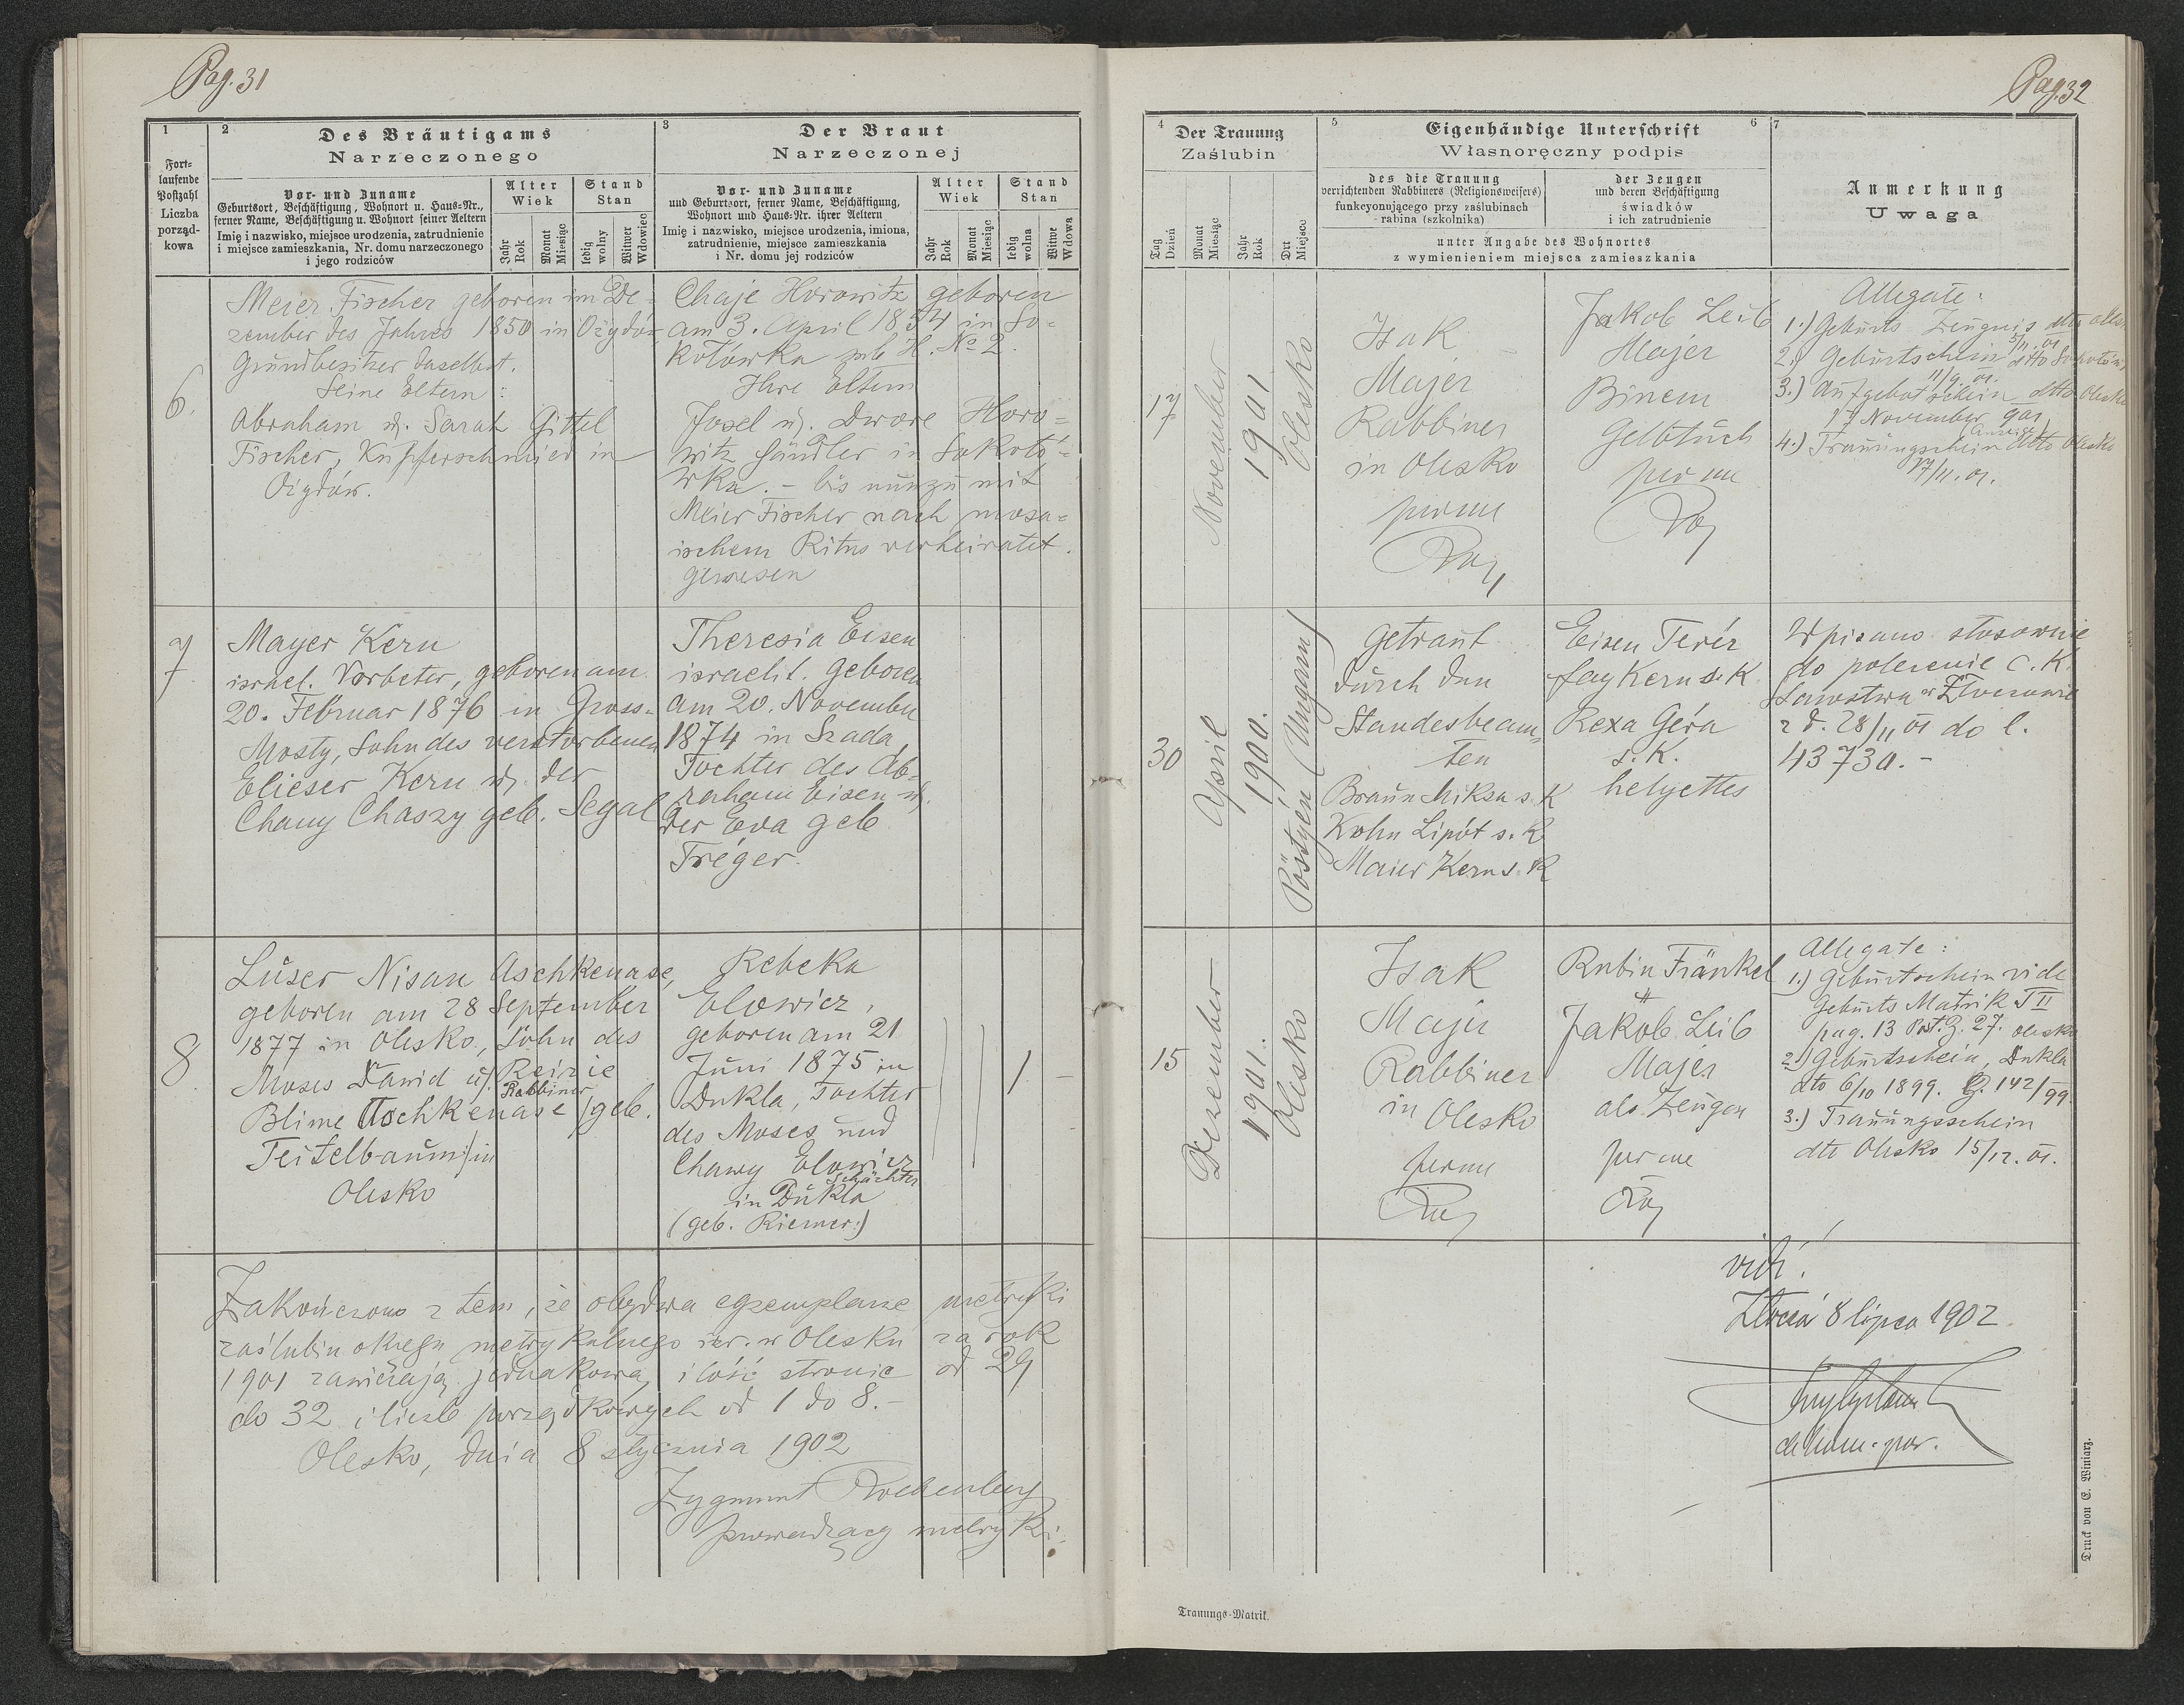 Pag. 31
1
Fort-
laufende
Postzahl
Liczba
porząd-
kowa
2
Des Bräutigams
Narzeczonego
Vor- und Zuname
Geburtsort, Beschäftigung, Wohnort u. Haus-Nr.,
ferner Name, Beschäftigung u. Wohnort seiner Aeltern
Imię i nazwisko, miejsce urodzenia, zatrudnienie
i miejsce zamieszkania, Nr. domu narzeczonego
i jego rodziców
Alter
Wiek
Jahr
Rok
Monat
Miesiąc
Stand
Stan
ledig
wolny
Witwer
Wdowiec
3
Der Braut
Narzeczonej
Vor- und Zuname
und Geburtsort, ferner Name, Beschäftigung,
Wohnort und Haus-Nr. ihrer Aeltern
Imię i nazwisko, miejsce urodzenia, imiona,
zatrudnienie, miejsce zamieszkania
i Nr. domu jej rodziców
Alter
Wiek
Jahr
Rok
Monat
Miesiąc
Stand
Stan
ledig
wolna
Witwe
Wdowa
6.
Meier Fischer geboren im De-
zember des Jahres 1850 in Ożydów
Grundbesitzer daselbst.
Seine Eltern:
Abraham u. Sarah Gittel
Fischer, Kupferschmied in
Ożydów.
Chaje Horowitz geboren
am 3. April 1854 in So-
kołówka sub H. No 2.
Ihre Eltern
Josel u. Dwore Horo=
witz Händler in Sokołó-
wka. - bis nunzu mit
Meier Fischer nach mosa=
ischem Ritus verheiratet
gewesen
7
Mayer Kern
israel. Vorbeter, geboren am
20. Februar 1876 in Gross-
Mosty, Sohn des verstorbenen
Elieser Kern u. der
Chany Chaszy geb. Segal
Theresia Eisen
israelit. geboren
am 20. November
1874 in Szada
Tochter des Ab-
raham Eisen u.
der Eva geb
Tréger.
8
Luser Nisan Aschkenase,
geboren am 28 September
1877 in Olesko, Sohn des
Moses Dawid u. Reizie
Rabbiner
Blime Aschkenase / geb.
Teitelbaum / in
Olesko
Rebeka
Elowicz,
geboren am 21
Juni 1875 in
Dukla, Tochter
des Moses und
Chawy Elowicz
Schächter
in Dukla
(geb. Riemer.)
1 -
Zakończono z tem, że obydwa egzemplarze metryki
zaślubin okręgu metrykalnego izr. w Olesku za rok
1901 zawierają jednakową ilość stronic od 29
do 32 i liczb porządkowych od 1 do 8.-
Olesko, dnia 8 stycznia 1902
Zygmunt
prowadzący metryki.
Pag. 32
4
Der Trauung
Zaślubin
Tag
Dzień
Monat
Miesiąc
Jahr
Rok
Ort
Miejsce
5
Eigenhändige Unterschrift
Własnoręczny podpis
6
des die Trauung
verrichtenden Rabbiners (Religionsweisers)
funkcyonującego przy zaślubinach
rabina (szkolnika)
der Zeugen
und deren Beschäftigung
świadków
i ich zatrudnienie
unter Angabe des Wohnortes
z wymienieniem miejsca zamieszkania
7
Anmerkung
Uwaga
17
November
1901
Olesko
Isak
Majer
Rabbiner
in Olesko
per me
Jakob Leib
Majer
Binem
Gelbtuch
per me
Allegate:
1.) Geburts-Zeugnis dtto
5/11. 01
2.) Geburtschein dtto
11/9. 01.
3.) Aufgebotschein dtto Olesko
17 November 901
(Anzeige)
4.) Trauungschein dtto Olesko
17/11. 01.
30
April
1900.
Pöstyén (Ungarn)
Getraut
durch den
Standesbeam-
ten
Braun Miksa s. K
Kohn Lipót s. K
Maier Kern s. K
Eisen Teréz
Kern s. K
Rexa Géra
s. K.
helyettes
Wpisano stosownie
do polecenie c. k.
Starostwa w Złoczowie
z d. 28/11 01 do l.
43730. -
15
Dezember
1901.
Olesko
Isak
Majer
Rabbiner
in Olesko
per me
Rubin Fränkel
Jakob Leib
Majer
als Zeugen
per me
Allegate:
1.) Geburtschein vide
Geburts Matrik T II
pag. 13 Post. Z. 27. Olesko
2.) Geburtschein, Dukla
dto 6/10 1899. Z. 142/99
3.) Trauungsschein
dto Olesko 15/12. 01.
vidi!
8 lipca 1902.
Trauungs-Matrik.
Druck von E. Winiarz.